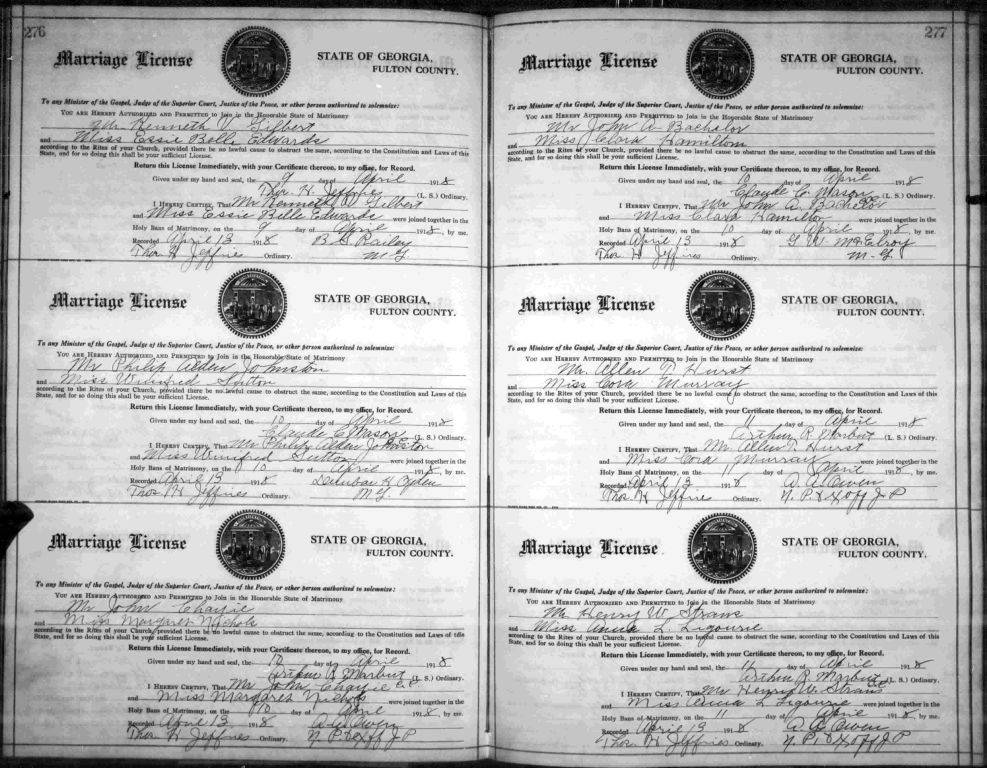 276
Marriage License
STATE OF GEORGIA,
FULTON COUNTY.
To any Minister of the Gospel, Judge of the Superior Court, Justice of the Peace, or other person authorized to solemnize:
YOU ARE HEREBY AUTHORIZED AND PERMITTED to Join in the Honorable State of Matrimony
Mr Kenneth V. Gilbert
and Miss Essie Belle Edwards
according to the Rites of your Church, provided there be no lawful cause to obstruct the same, according to the Constitution and Laws of this
State, and for so doing this shall be your sufficient License.
Return this License Immediately, with your Certificate thereon, to my office, for Record.
Given under my hand and seal, the 9 day of April 1918
Thos. H. Jeffries (L. S.) Ordinary.
I HEREBY CERTIFY, That Mr Kenneth V. Gilbert
and Miss Essie Belle Edwards were joined together in the
Holy Bans of Matrimony, on the 9 day of April 1918, by me.
Recorded April 13 1918 Bailey
Thos H Jeffries Ordinary. M G
Marriage License
STATE OF GEORGIA,
FULTON COUNTY.
To any Minister of the Gospel, Judge of the Superior Court, Justice of the Peace, or other person authorized to solemnize:
YOU ARE HEREBY AUTHORIZED AND PERMITTED to Join in the Honorable State of Matrimony
Mr Philip Alden Johnston
and Miss Winifred Sutton
according to the Rites of your Church, provided there be no lawful cause to obstruct the same, according to the Constitution and Laws of this
State, and for so doing this shall be your sufficient License.
Return this License Immediately, with your Certificate thereon, to my office, for Record.
Given under my hand and seal, the 10 day of April 1918
Claude C. Mason (L. S.) Ordinary.
I HEREBY CERTIFY, That Mr Philip Alden Johnston
and Miss Winifred Sutton were joined together in the
Holy Bans of Matrimony, on the 10 day of April 1918, by me.
Recorded April 13 1918 Dunbar H Ogden
Thos H Jeffries Ordinary. M G
Marriage License
STATE OF GEORGIA,
FULTON COUNTY.
To any Minister of the Gospel, Judge of the Superior Court, Justice of the Peace, or other person authorized to solemnize:
YOU ARE HEREBY AUTHORIZED AND PERMITTED to Join in the Honorable State of Matrimony
Mr John
and Miss Margaret Nichols
according to the Rites of your Church, provided there be no lawful cause to obstruct the same, according to the Constitution and Laws of this
State, and for so doing this shall be your sufficient License.
Return this License Immediately, with your Certificate thereon, to my office, for Record.
Given under my hand and seal, the 10 day of April 1918
Arthur R. Marbut (L. S.) Ordinary.
I HEREBY CERTIFY, That Mr John
and Miss Margaret Nichols were joined together in the
Holy Bans of Matrimony, on the 10 day of April 1918, by me.
Recorded April 13 1918 A. A. Owen
Thos H Jeffries Ordinary. N. P. & Ex off J P
277
Marriage License
STATE OF GEORGIA,
FULTON COUNTY.
To any Minister of the Gospel, Judge of the Superior Court, Justice of the Peace, or other person authorized to solemnize:
YOU ARE HEREBY AUTHORIZED AND PERMITTED to Join in the Honorable State of Matrimony
Mr John A. Bachelor
and Miss Clara Hamilton
according to the Rites of your Church, provided there be no lawful cause to obstruct the same, according to the Constitution and Laws of this
State, and for so doing this shall be your sufficient License.
Return this License Immediately, with your Certificate thereon, to my office, for Record.
Given under my hand and seal, the 10 day of April 1918
Claude C. Mason (L. S.) Ordinary.
I HEREBY CERTIFY, That Mr John A. Bachelor
and Miss Clara Hamilton were joined together in the
Holy Bans of Matrimony, on the 10 day of April 1918, by me.
Recorded April 13 1918 G. W. McElroy
Thos H Jeffries Ordinary. M. G
Marriage License
STATE OF GEORGIA,
FULTON COUNTY.
To any Minister of the Gospel, Judge of the Superior Court, Justice of the Peace, or other person authorized to solemnize:
YOU ARE HEREBY AUTHORIZED AND PERMITTED to Join in the Honorable State of Matrimony
Mr. Allen T. Hurst
and Miss Cora Murray
according to the Rites of your Church, provided there be no lawful cause to obstruct the same, according to the Constitution and Laws of this
State, and for so doing this shall be your sufficient License.
Return this License Immediately, with your Certificate thereon, to my office, for Record.
Given under my hand and seal, the 11 day of April 1918
Arthur R. Marbut (L. S.) Ordinary.
I HEREBY CERTIFY, That Mr Allen T. Hurst
and Miss Cora Murray were joined together in the
Holy Bans of Matrimony, on the 11 day of April 1918, by me.
Recorded April 13 1918 A. A. Owen
Thos. H Jeffries Ordinary. N. P. & Ex off J P
Marriage License
STATE OF GEORGIA,
FULTON COUNTY.
To any Minister of the Gospel, Judge of the Superior Court, Justice of the Peace, or other person authorized to solemnize:
YOU ARE HEREBY AUTHORIZED AND PERMITTED to Join in the Honorable State of Matrimony
Mr Henry W. Straus
and Miss Anna L. Ligourie
according to the Rites of your Church, provided there be no lawful cause to obstruct the same, according to the Constitution and Laws of this
State, and for so doing this shall be your sufficient License.
Return this License Immediately, with your Certificate thereon, to my office, for Record.
Given under my hand and seal, the 11 day of April 1918
Arthur R. Marbut (L. S.) Ordinary.
I HEREBY CERTIFY, That Mr Henry W. Straus
and Miss Anna L Ligourie were joined together in the
Holy Bans of Matrimony, on the 11 day of April 1918, by me.
Recorded April 13 1918 A. A. Owen
Thos. H Jeffries Ordinary. N. P. & Ex off J P